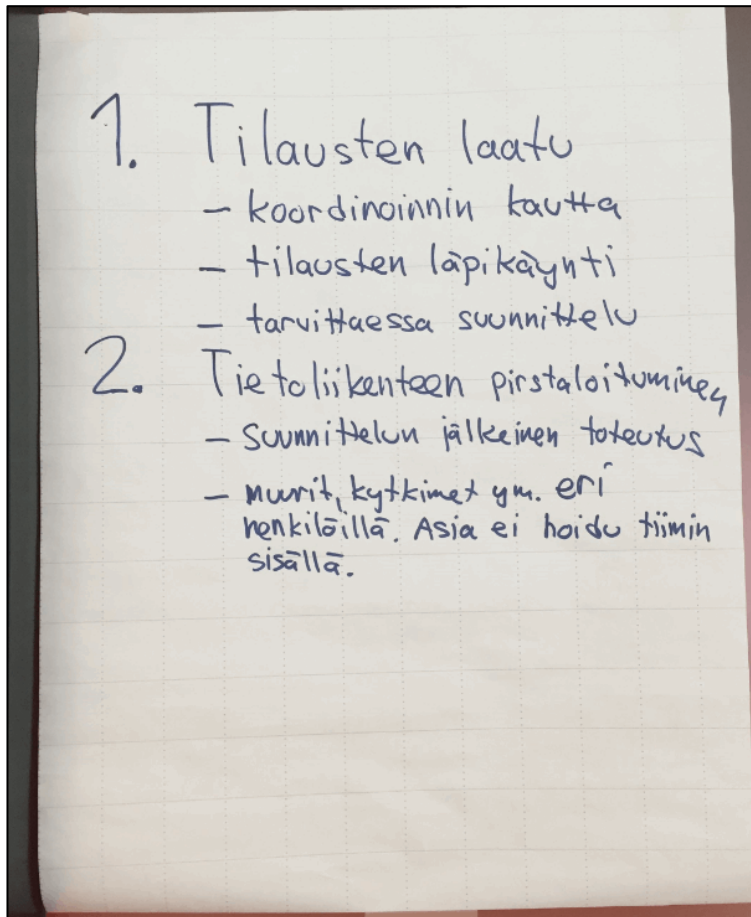 1. Tilausten laatu
- koordinoinnin kautta
- tilausten läpikäynti
- tarvittaessa suunnittelu
2. Tietoliikenteen pirstaloituminen
- suunnittelun jälkeinen toteutus
- muurit, kytkimet ym. eri
henkilöillä. Asia ei hoidu tiimin
sisällä.